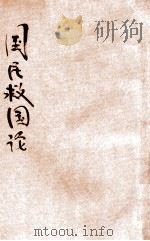 国民救国论
研问
mtoou.info